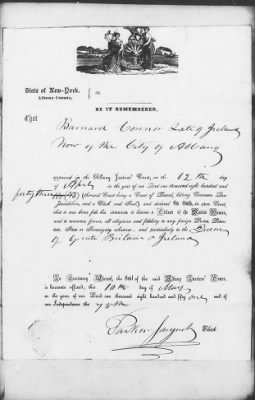 State of New-York,
Albany County, } ss.
BE IT REMEMBERED,
That Barnard Connor Late of Ireland
Now of the City of Albany
appeared in the Albany Justices' Court, on the 12th day
of April in the year of our Lord one thousand eight hundred and
forty three (the said Court being a Court of Record, having Common Law
Jurisdiction, and a Clerk and Seal), and declared on oath, in open Court,
that it was bona fide his intention to become a Citizen of the United States,
and to renounce forever, all allegiance and fidelity to any foreign Prince, Potentate,
State or Sovereignty whatever, and particularly to the Queen
of Great Britain & Ireland
In Testimony Whereof, the Seal of the said Albany Justices' Court,
is hereunto affixed, this 10th day of May
in the year of our Lord one thousand eight hundred and fifty one and of
our Independence the 75th
Parker Sargent Clerk.